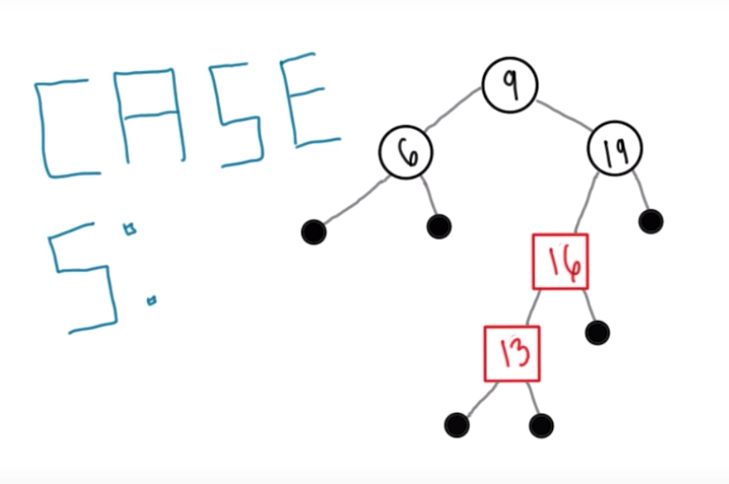 CASE
5:
9
6
19
16
13